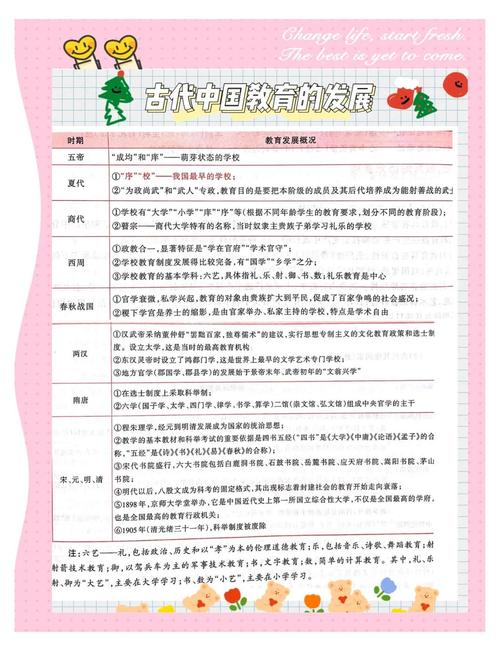 Change life, start fresh.
The best is yet to come.
古代中国教育的发展
时期 教育发展概况
五帝 “成均”和“庠”——萌芽状态的学校
夏代 ①“序”“校”——我国最早的学校;
②“为政尚武”和“武人”专政,教育目的是要把本阶级的成员及其后代培养成为能射善战的武士
商代 ①学校有“大学”“小学”“庠”“序”等(根据不同年龄学生的教育要求,划分不同的教育阶段);
②瞽宗——商代大学特有的名称,当时奴隶主贵族子弟学习礼乐的学校
西周 ①政教合一,显著特征是“学在官府”“学术官守”;
②学校教育制度发展得比较完备,有“国学”“乡学”之分;
③学校教育的基本学科:六艺,具体指礼、乐、射、御、书、数;礼乐教育是中心
春秋战国 ①官学衰微,私学兴起,教育的对象由贵族扩大到平民,促成了百家争鸣的社会盛况;
②稷下学宫是养士的缩影,是由官家举办、私家主持的学校,特点是学术自由
两汉 ①汉武帝采纳董仲舒“罢黜百家,独尊儒术”的建议,实行思想专制主义的文化教育政策和选士制
度。设立太学,这是当时的最高教育机构
②东汉灵帝时设立了鸿都门学,这是世界上最早的文学艺术专门学校;
③地方官学(郡国学、郡县学)的发展始于景帝末年、武帝初年的“文翁兴学”
隋唐 ①在选士制度上采取科举制;
②六学(国子学、太学、四门学、律学、书学、算学)二馆(崇文馆、弘文馆)组成中央官学的主干
宋、元、明、清 ①程朱理学,经元到明清发展成为国家的统治思想;
②教学的基本教材和科举考试的重要依据是四书五经(“四书”是《大学》《中庸》《论语》《孟子》的合
称,“五经”是《诗》《书》《礼》《易》《春秋》的合称);
③宋代书院盛行,六大书院包括白鹿洞书院、石鼓书院、岳麓书院、应天府书院、嵩阳书院、茅山
书院;
④明代以后,八股文成为科考的固定格式,其出现标志着封建社会的教育开始走向衰落;
⑤1898年,京师大学堂举办,它是中国近代史上第一所国立综合性大学,不仅是全国最高的学府,
也是全国最高的教育行政机关;
⑥1905年(清光绪三十一年),科举制度被废除
注:六艺——礼,包括政治、历史和以“孝”为本的伦理道德教育;乐,包括音乐、诗歌、舞蹈教育;射,
射箭技术教育;御,以驾兵车为主的军事技术教育;书,文字教育;数,简单的计算教育。其中,礼、乐、
射、御为“大艺”,主要在大学学习;书、数为“小艺”,主要在小学学习。